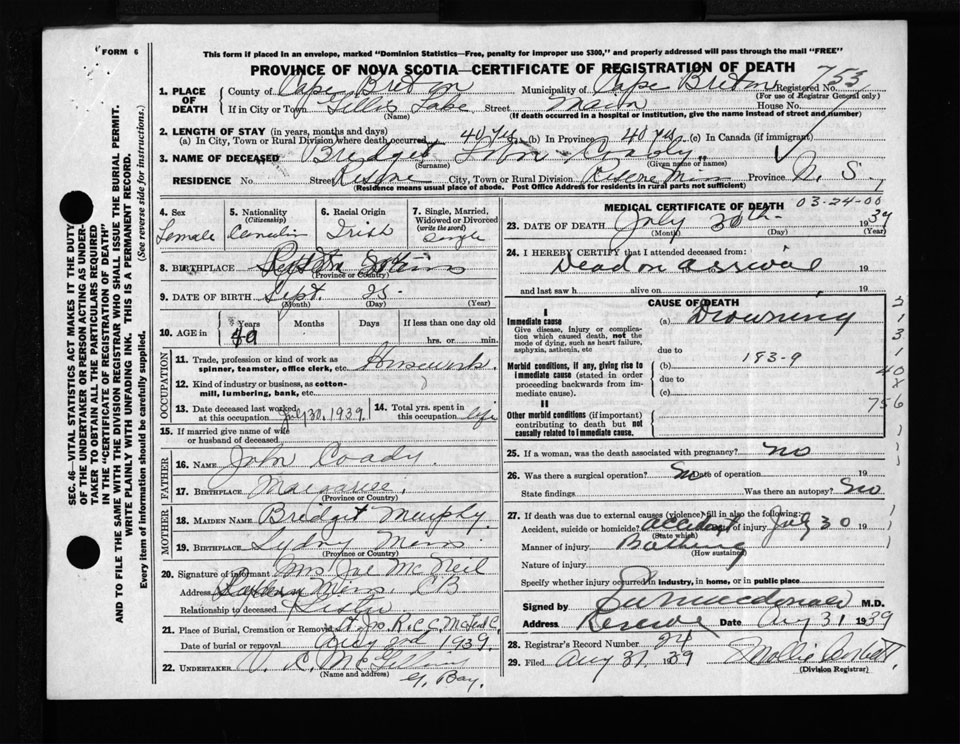 FORM 6
This form if placed in an envelope, marked "Dominion Statistics—Free, penalty for improper use $300," and properly addressed will pass through the mail "FREE"
PROVINCE OF NOVA SCOTIA—CERTIFICATE OF REGISTRATION OF DEATH
753
1. PLACE OF DEATH
County of Cape Breton Municipality of Cape Breton Registered No.
(For use of Registrar General only)
If in City or Town Gillis Lake Street Main House No.
(Name) (If death occurred in a hospital or institution, give the name instead of street and number)
2. LENGTH OF STAY (in years, months and days)
(a) In City, Town or Rural Division where death occurred 40 yrs (b) In Province 40 yrs (c) In Canada (if immigrant)
3. NAME OF DECEASED Bridget Coady
(Surname) (Given name or names)
RESIDENCE No. Street City, Town or Rural Division Reserve Mines Province N. S.
(Residence means usual place of abode. Post Office Address for residents in rural parts not sufficient)
4. Sex
Female
5. Nationality
(Citizenship)
Canadian
6. Racial Origin
Irish
7. Single, Married, Widowed or Divorced
(write the word)
Single
8. BIRTHPLACE Mines
(Province or Country)
9. DATE OF BIRTH Sept. 25
(Month) (Day) (Year)
10. AGE in
Years Months Days If less than one day
hrs. or min.
OCCUPATION
11. Trade, profession or kind of work as spinner, teamster, office clerk, etc. Housework.
12. Kind of industry or business, as cotton-mill, lumbering, bank, etc.
13. Date deceased last worked at this occupation July 30, 1939.
14. Total yrs. spent in this occupation life
15. If married give name of wife or husband of deceased
FATHER
16. NAME John Coady.
17. BIRTHPLACE Margaree,
(Province or Country)
MOTHER
18. MAIDEN NAME Bridget Murphy.
19. BIRTHPLACE Sydney Mines
(Province or Country)
20. Signature of informant Mrs Joe McNeil
Address Mines, CB
Relationship to deceased Sister
21. Place of Burial, Cremation or Removal R.C.C.
Date of burial or removal Aug 2nd 1939.
22. UNDERTAKER V. C.
(Name and address)
G. Bay.
MEDICAL CERTIFICATE OF DEATH 03-24-00
23. DATE OF DEATH July 30th 1939
(Month) (Day) (Year)
24. I HEREBY CERTIFY that I attended deceased from:
Dead on arrival 19
and last saw h alive on 19
CAUSE OF DEATH
I
Immediate cause (a) Drowning
Give disease, injury or complication which caused death, not the mode of dying, such as heart failure, asphyxia, asthenia, etc
due to
183-9
Morbid conditions, if any, giving rise to immediate cause (stated in order proceeding backwards from immediate cause).
(b)
due to
(c)
II
Other morbid conditions (if important) contributing to death but not causally related to immediate cause.
756
25. If a woman, was the death associated with pregnancy? no
26. Was there a surgical operation? No Date of operation 19
State findings Was there an autopsy? No
27. If death was due to external causes (violence) fill in also the following:
Accident, suicide or homicide? accident Date of injury July 30 19
(State which)
Manner of injury Bathing
(How sustained)
Nature of injury
Specify whether injury occurred in industry, in home, or in public place
Signed by M.D.
Address Reserve Date Aug 31 1939
28. Registrar's Record Number 24
29. Filed Aug 31 1939
(Division Registrar)
SEC. 46—VITAL STATISTICS ACT MAKES IT THE DUTY
OF THE UNDERTAKER OR PERSON ACTING AS UNDER-
TAKER TO OBTAIN ALL THE PARTICULARS REQUIRED
IN THE "CERTIFICATE OF REGISTRATION OF DEATH"
AND TO FILE THE SAME WITH THE DIVISION REGISTRAR WHO SHALL ISSUE THE BURIAL PERMIT.
WRITE PLAINLY WITH UNFADING INK. THIS IS A PERMANENT RECORD.
Every item of information should be carefully supplied. (See reverse side for instructions.)